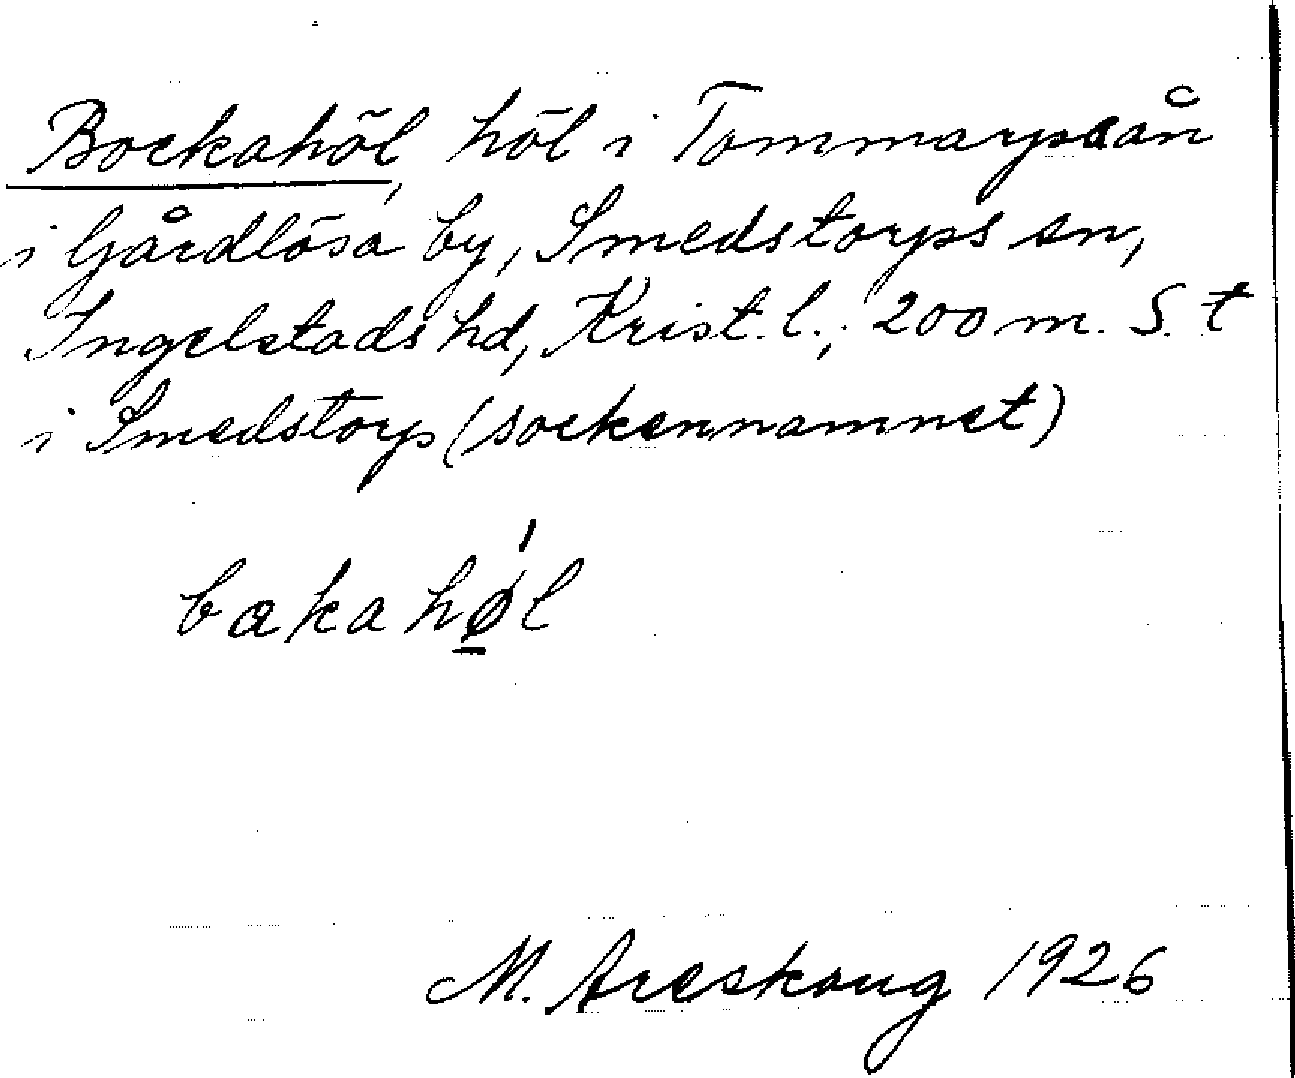 Bockahöl, höl i Tommarpsån
i Gårdlösa by, Smedstorps sn,
Ingelstads hd, Krist. l.; 200 m. S. t
i Smedstorp (sockennamnet)
bakahǿ̱l
M. Areskoug 1926